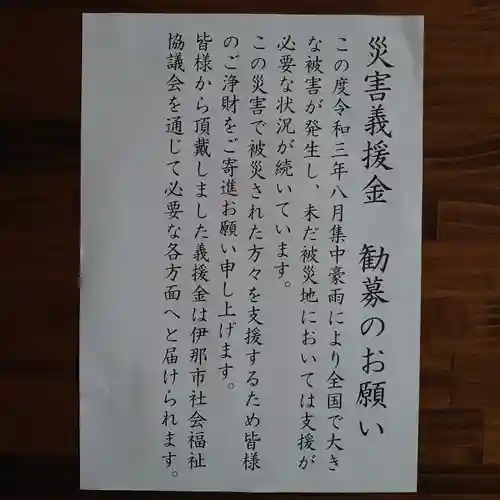 災害義援金　勧募のお願い
この度令和三年八月集中豪雨により全国で大き
な被害が発生し、未だ被災地においては支援が
必要な状況が続いています。
この災害で被災された方々を支援するため皆様
のご浄財をご寄進お願い申し上げます。
皆様から頂戴しました義援金は伊那市社会福祉
協議会を通じて必要な各方面へと届けられます。